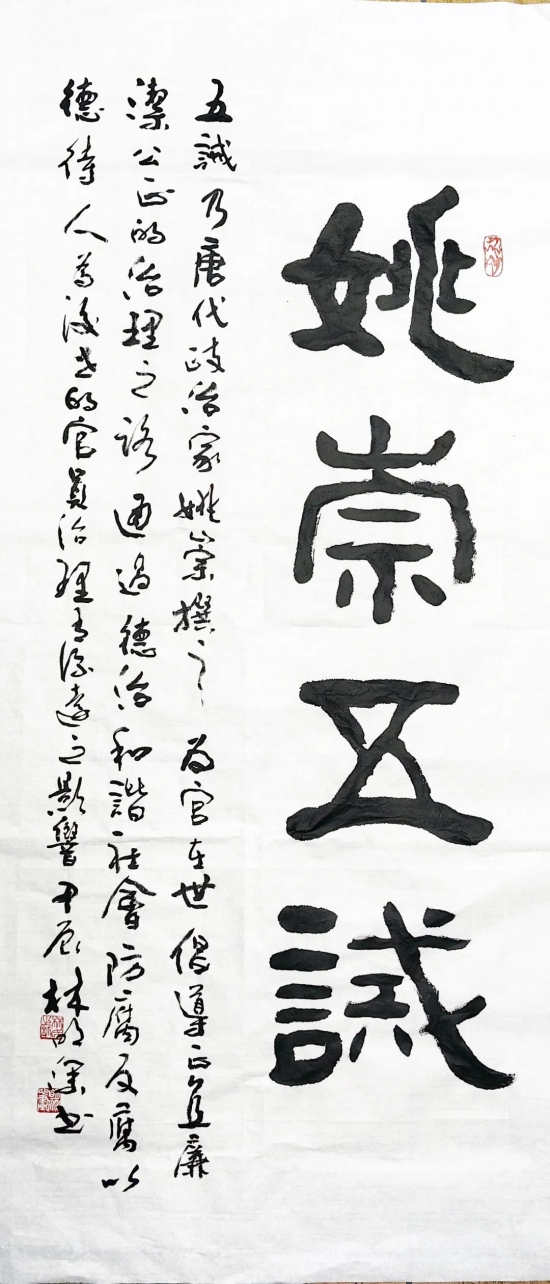 姚崇五誡
五誡乃唐代政治家姚崇撰之為官在世倡導正直廉
潔公正的治理之路通過德治和諧社會防腐反腐以
德待人為後世的官員治理有深遠之影響甲辰林
書